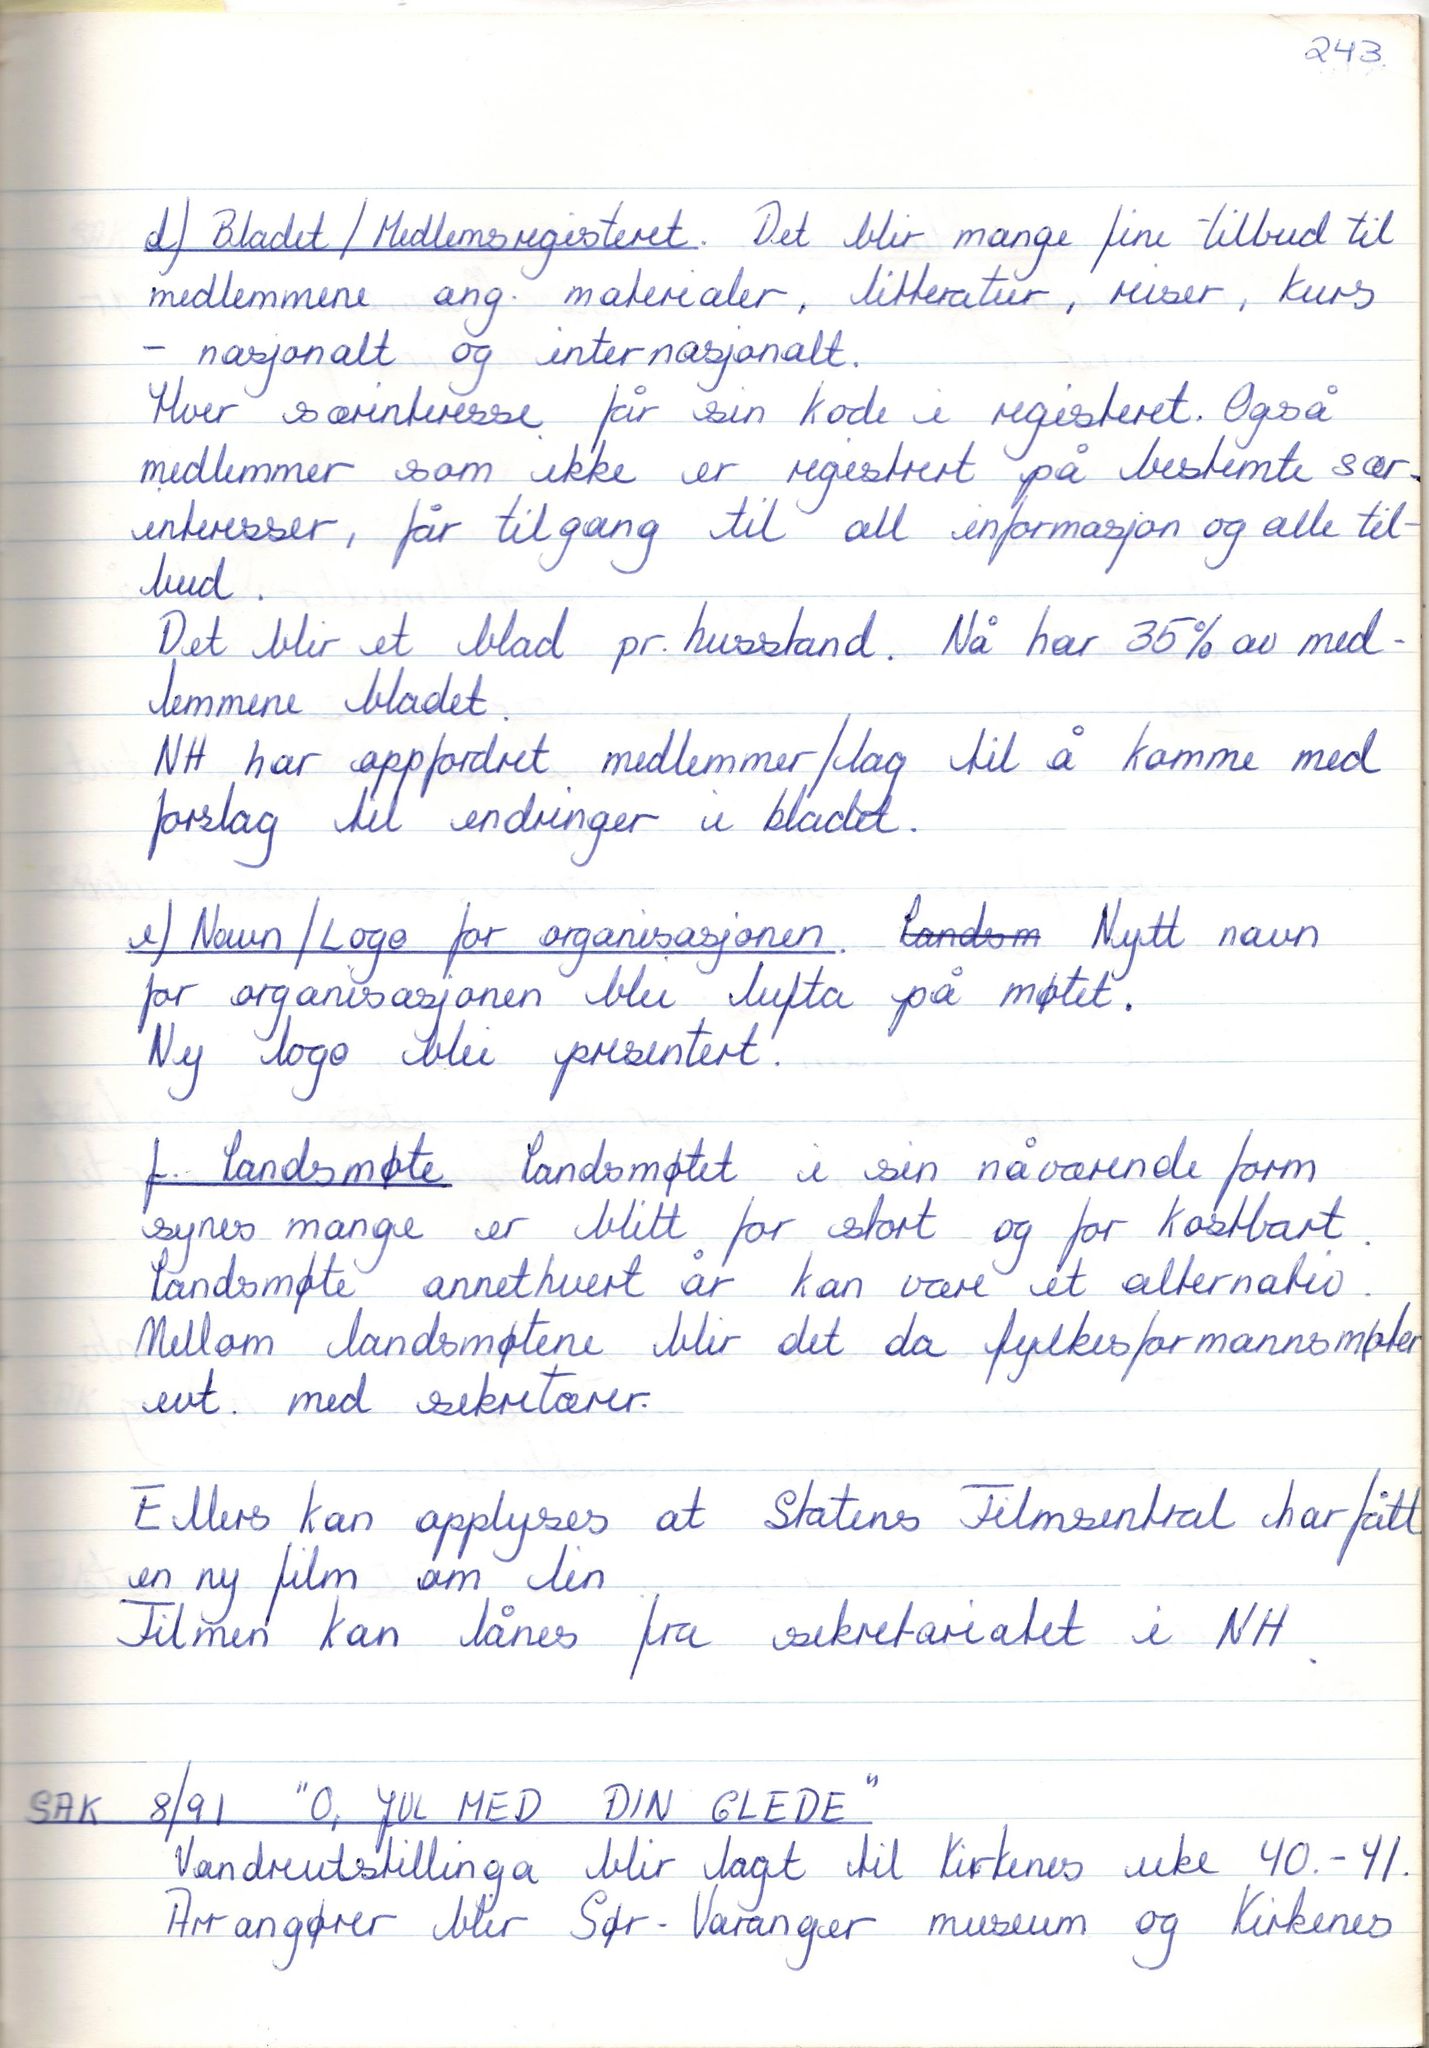 243.
d) Bladet / Medlemsregisteret. Det blir mange fine tilbud til
medlemmene ang. materialer, litteratur, reiser, kurs
- nasjonalt og internasjonalt.
Hver særinteresse får sin kode i registeret. Også
medlemmer som ikke er registrert på bestemte sær-
interesser, får tilgang til all informasjon og alle til-
bud.
Det blir et blad pr. husstand. Nå har 35% av med-
lemmene bladet.
NH har oppfordret medlemmer/lag til å komme med
forslag til endringer i bladet.
e) Navn/Logo for organisasjonen. Landsm Nytt navn
for organisasjonen blei lufta på møtet.
Ny logo blei presentert.
f. Landsmøte Landsmøtet i sin nåværende form
synes mange er blitt for stort og for kostbart.
Landsmøte annethvert år kan være et alternativ.
Mellom landsmøtene blir det da fylkesformannsmøter
evt. med sekretærer.
Ellers kan opplyses at Statens Filmsentral har fått
en ny film om lin
Filmen kan lånes fra sekretariatet i NH.
SAK 8/91 "O, JUL MED DIN GLEDE"
Vandreutstillinga blir lagt til Kirkenes uke 40.-41.
Arrangører blir Sør-Varanger museum og Kirkenes